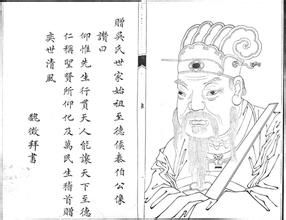 贈吳氏世家始祖至德侯泰伯公像
讚曰
仰惟先生行貫天人能讓天下至德
仁稱聖賢所仰化及萬民生精首贈
奕世清風
魏徵拜書